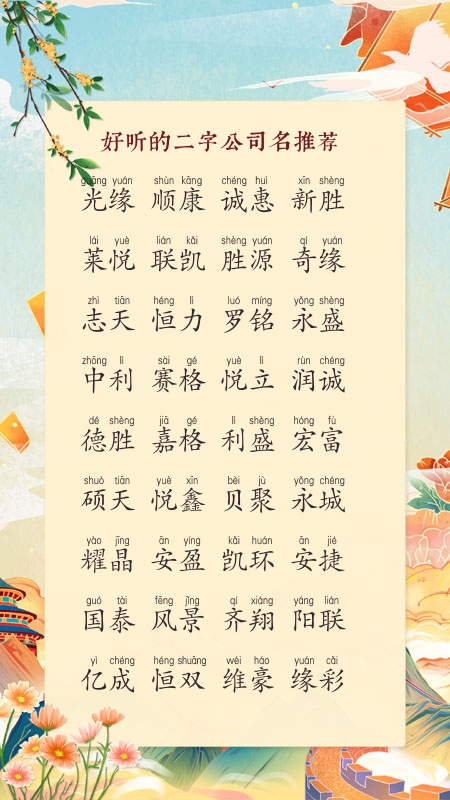 好听的二字公司名推荐
guāng yuán shùn kāng chéng huì xīn shèng
光缘 顺康 诚惠 新胜
lái yuè lián kǎi shèng yuán qí yuán
莱悦 联凯 胜源 奇缘
zhì tiān héng lì luó míng yǒng shèng
志天 恒力 罗铭 永盛
zhōng lì sài gé yuè lì rùn chéng
中利 赛格 悦立 润诚
dé shèng jiā gé lì shèng hóng fù
德胜 嘉格 利盛 宏富
shuò tiān yuè xīn bèi jù yǒng chéng
硕天 悦鑫 贝聚 永城
yào jīng ān yíng kǎi huán ān jié
耀晶 安盈 凯环 安捷
guó tài fēng jǐng qí xiáng yáng lián
国泰 风景 齐翔 阳联
yì chéng héng shuāng wéi háo yuán cǎi
亿成 恒双 维豪 缘彩